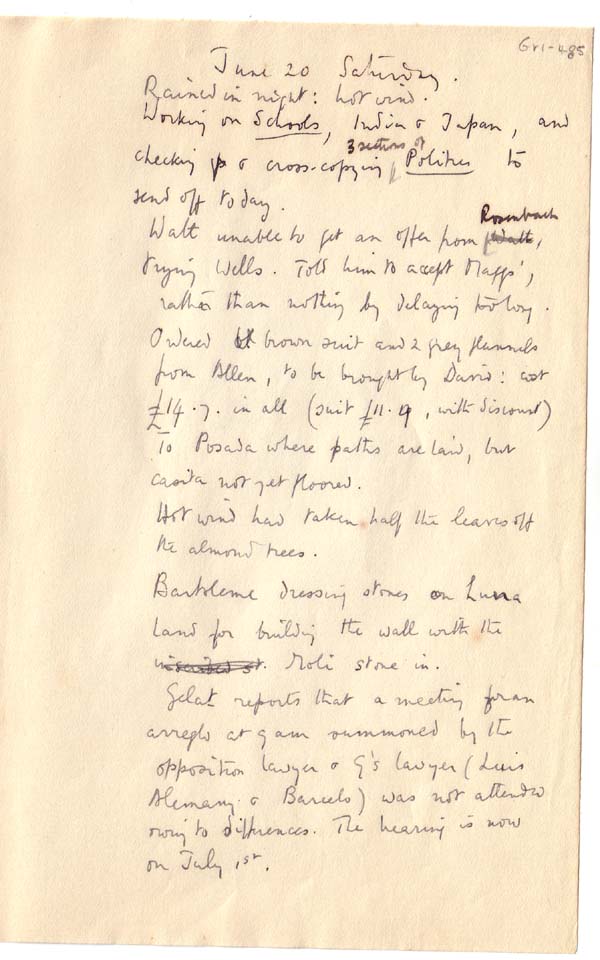 Gr1-485
June 20 Saturday.
Rained in night: hot wind.
Working on Schools, India & Japan, and
checking p & cross-copying 3 sections of Politics to
send off today.
Walt unable to get an offer from Rosenbach,
trying Wells. Told him to accept Maggs',
rather than nothing by delaying too long.
Ordered brown suit and 2 grey flannels
from Allen, to be brought by David: cost
£14.7. in all (suit £11.9, with discount)
To Posada where paths are laid, but
casita not yet floored.
Hot wind had taken half the leaves off
the almond trees.
Bartoleme dressing stones on Luna
Land for building the wall with the
Moli stone in.
Gelat reports that a meeting for an
arreglo at 9 am summoned by the
opposition lawyer & G's lawyer (Luis
Alemany & Barcelo) was not attended
owing to differences. The hearing is now
on July 1st.